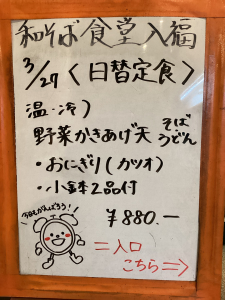 和そば食堂入福
3/27 〈日替定食〉
温・冷)
野菜かきあげ天 そば うどん
・おにぎり(カツオ)
・小鉢2品付
¥880.―
今日もがんばろう!
=入口
こちら=>